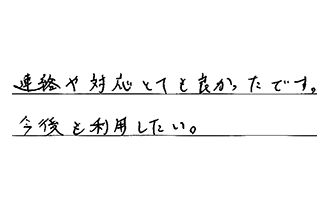 連絡や対応とても良かったです。
今後も利用したい。